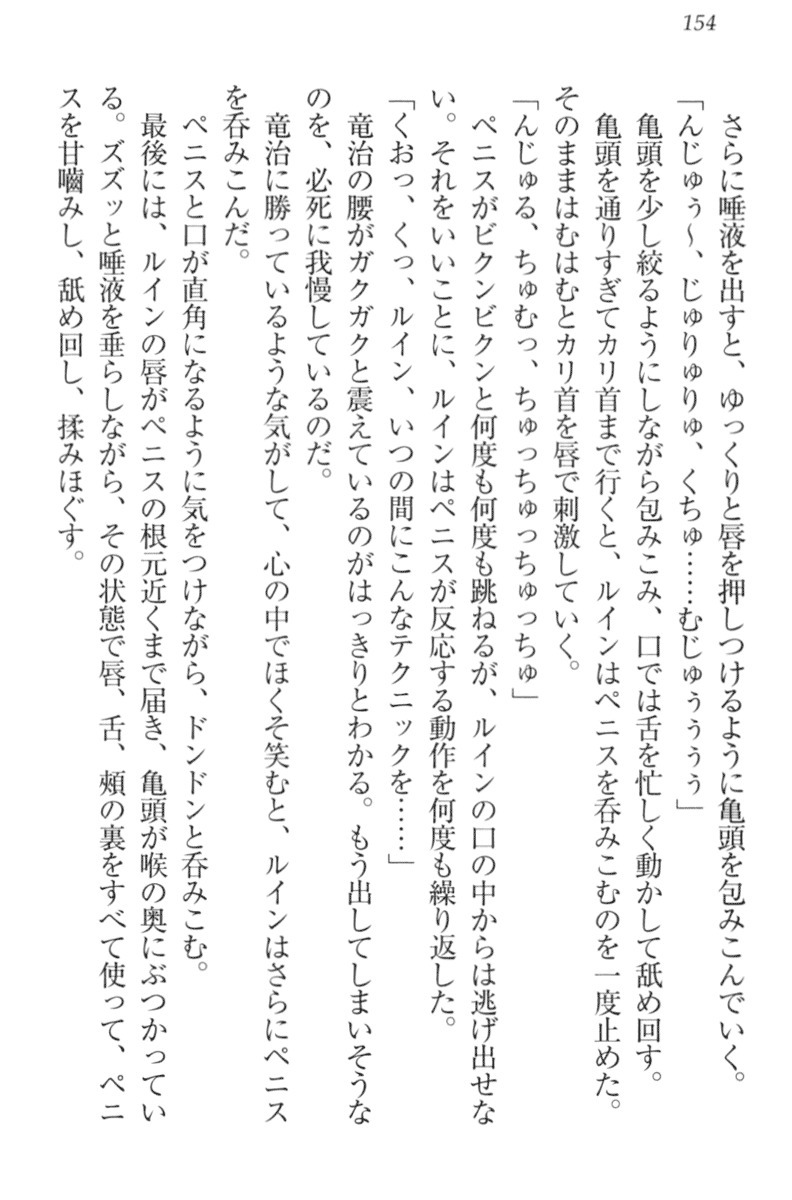 154
さらに唾液を出すと、ゆっくりと唇を押しつけるように亀頭を包みこんでいく。
「んじゅぅ〜、じゅりゅりゅ、くちゅ……むじゅぅぅぅ」
亀頭を少し絞るようにしながら包みこみ、口では舌を忙しく動かして舐め回す。
亀頭を通りすぎてカリ首まで行くと、ルインはペニスを呑みこむのを一度止めた。
そのままはむはむとカリ首を唇で刺激していく。
「んじゅる、ちゅむっ、ちゅっちゅっちゅっちゅ」
ペニスがビクンビクンと何度も何度も跳ねるが、ルインの口の中からは逃げ出せな
い。それをいいことに、ルインはペニスが反応する動作を何度も繰り返した。
「くおっ、くっ、ルイン、いつの間にこんなテクニックを……」
竜治の腰がガクガクと震えているのがはっきりとわかる。もう出してしまいそうな
のを、必死に我慢しているのだ。
竜治に勝っているような気がして、心の中でほくそ笑むと、ルインはさらにペニス
を呑みこんだ。
ペニスと口が直角になるように気をつけながら、ドンドンと呑みこむ。
最後には、ルインの唇がペニスの根元近くまで届き、亀頭が喉の奥にぶつかってい
る。ズズッと唾液を垂らしながら、その状態で唇、舌、頬の裏をすべて使って、ペニ
スを甘嚙みし、舐め回し、揉みほぐす。